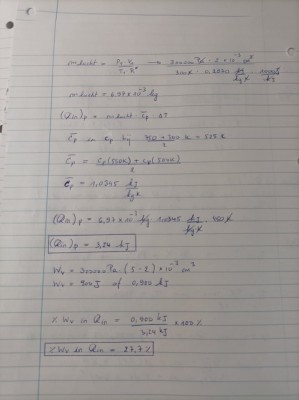 m lucht = P₁ V₁ / T₁ · R → 200000 Pa · 2 × 10⁻³ m³ / 300K · 0,2870 kJ/kg K · 1000J/kJ
m lucht = 6,97 × 10⁻³ kg
(Qin)p = m lucht · c̄p · ΔT
c̄p in K bij 750 + 300 K / 2 = 525 K
c̄p = cp(550K) + cp(500K) / 2
c̄p = 1,0345 kJ / kg K
(Qin)p = 6,97 × 10⁻³ kg · 1,0345 kJ / kg K · 450 K
(Qin)p = 3,24 kJ
Wv = 300000 Pa · (5 - 2) × 10⁻³ m³
Wv = 900 J of 0,900 kJ
% Wv in Qin = 0,900 kJ / 3,24 kJ × 100 %
% Wv in Qin = 27,7 %